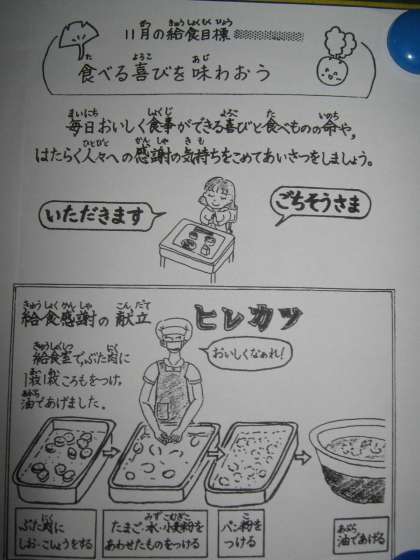 11月の給食目標
食べる喜びを味わおう
毎日おいしく食事ができる喜びと食べものの命や、
はたらく人々への感謝の気持ちをこめてあいさつをしましょう。
いただきます
ごちそうさま
給食感謝の献立 ヒレカツ
給食室で、ぶた肉に
1枚1枚ころもをつけ、
油であげました。
おいしくなぁれ!
ぶた肉に
しお・こしょうをする
たまご・水・小麦粉を
あわせたものをつける
パン粉を
つける
油であげる